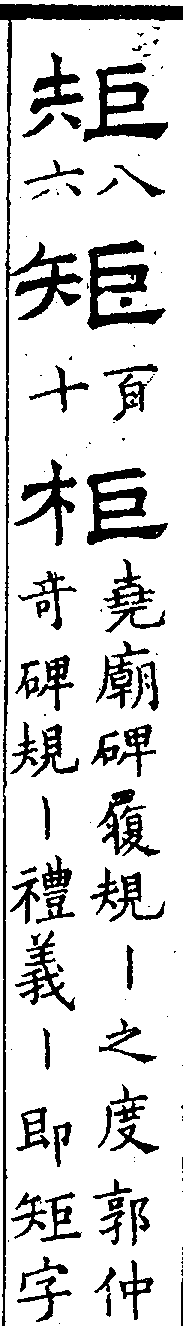 八
六
矩
百
十
柜
堯廟碑履規｜之度郭仲
奇碑規｜禮義｜即矩字